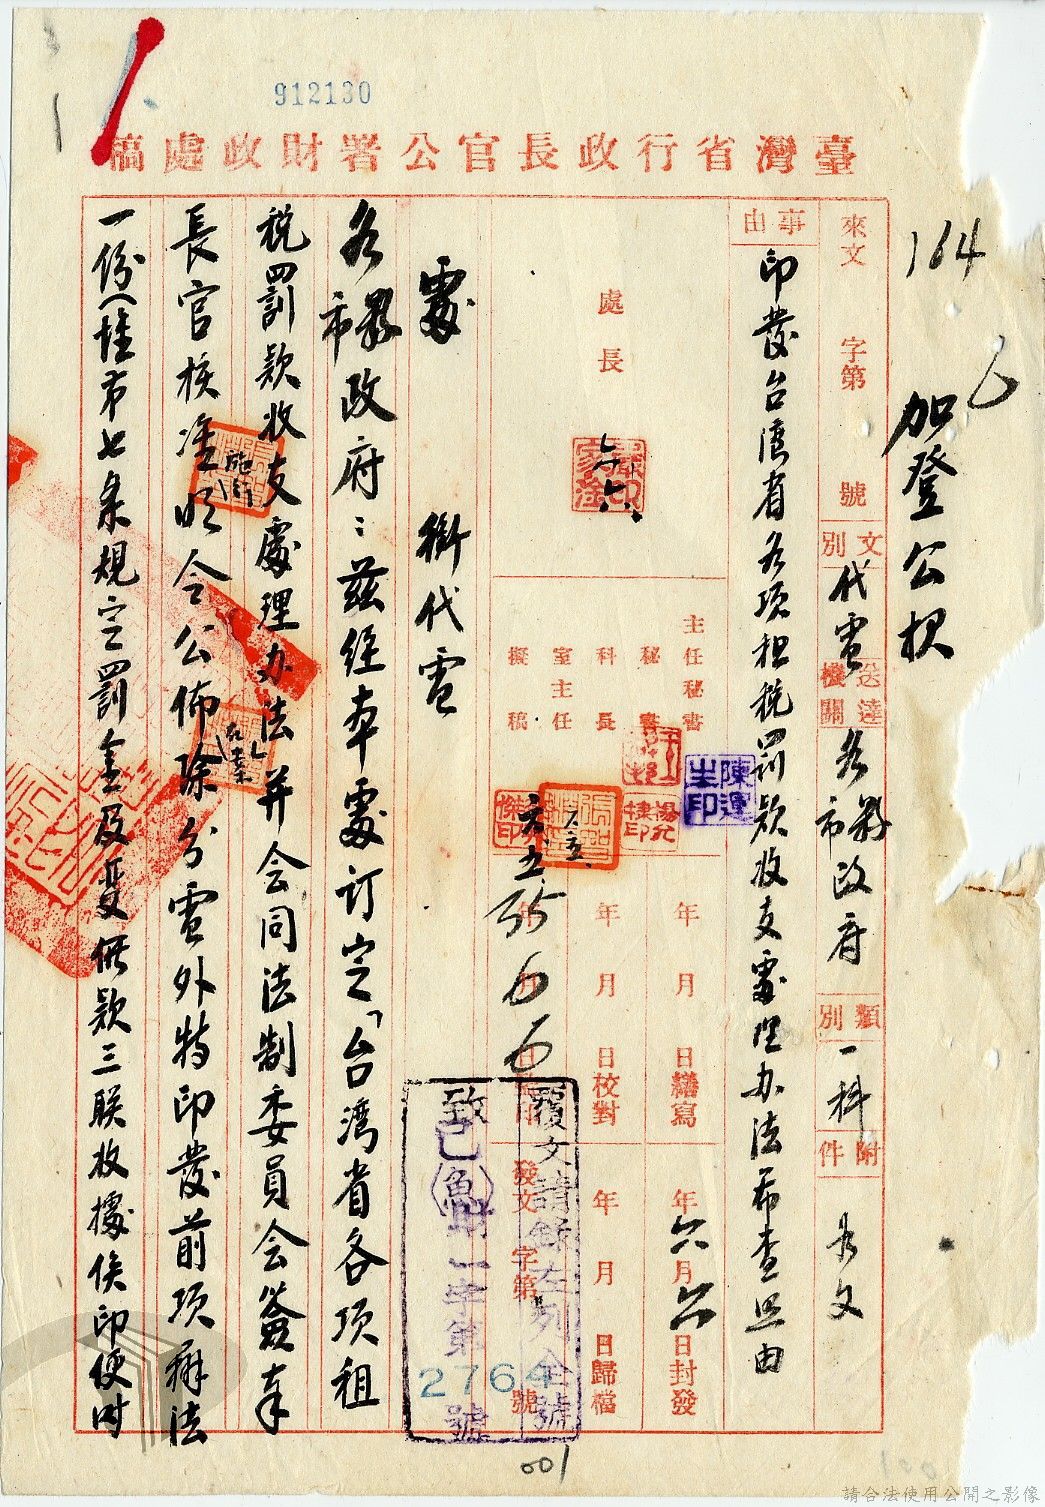 912130
臺灣省行政長官公署財政處稿
164
加登公報
來文 字第 號
文別 代電
送達機關 各縣市政府
類別 一科
附件 如文
事由 印發台灣省各項租稅罰款收支處理办法希查照由
處長 六六
主任秘書
秘書
科長
室主任
擬稿
陳運生印
六.五
年 月 日繕寫
年 月 日校對
35 6 6
年六月六日封發
年 月 日歸檔
發文 字第 號
覆文請錄左列全號
致己(魚)財一字第2764號
處銜代電
各縣市政府：茲經本處訂定「台灣省各項租
稅罰款收支處理办法并会同法制委員会簽奉
長官核准施行明令公佈除分電外特印發前項辦法
一份(惟第七条規定罰金及變価款三联收據俟印便時
001
請合法使用公開之影像